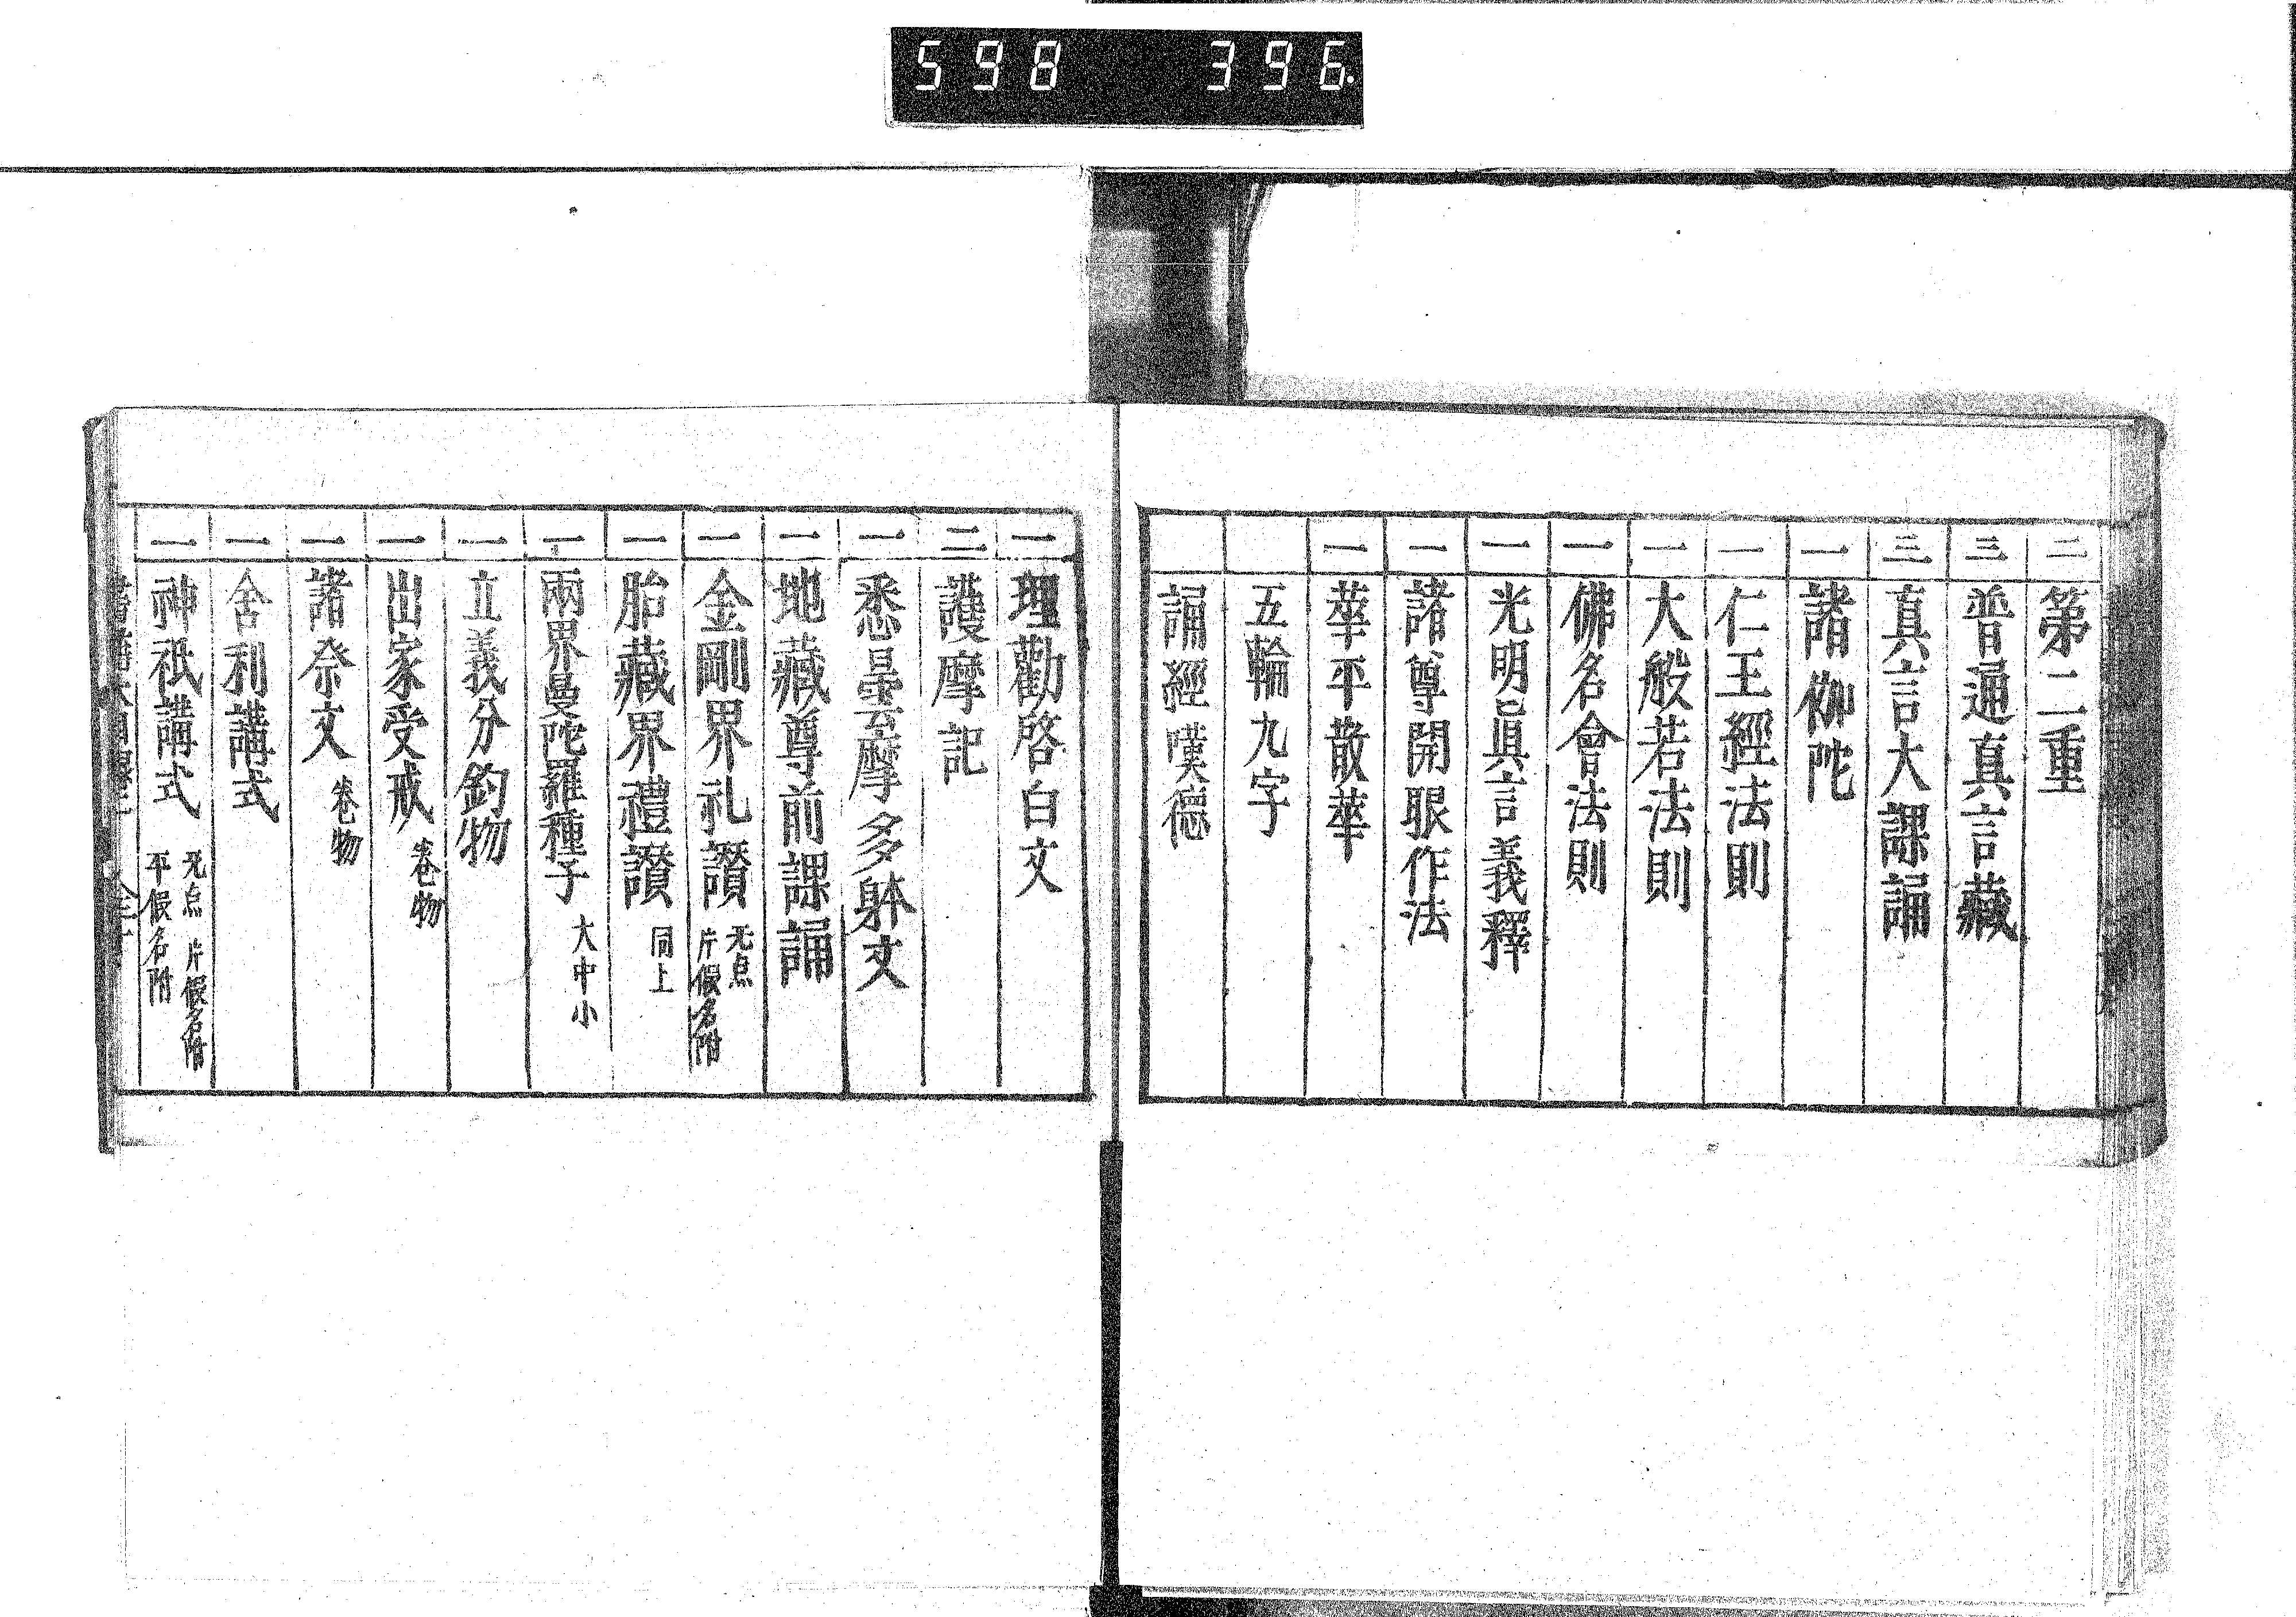 598 396.
二 第二重
三 普通真言藏
三 真言大課誦
一 諸伽陀
一 仁王經法則
一 大般若法則
一 佛名會法則
一 光明眞言義釋
一 諸尊開眼作法
一 華平散華
五輪九字
誦經嘆德
一 理勸啓白文
二 護摩記
一 悉曇摩多躰文
一 地藏尊前課誦
一 金剛界礼讃 无点 片假名附
一 胎藏界禮讃 同上
一 兩界曼陀羅種子 大中小
一 立義分鈞物
一 出家受戒 卷物
一 諸祭文 卷物
一 舍利講式
一 神祇講式 无点 片假名附 平假名附